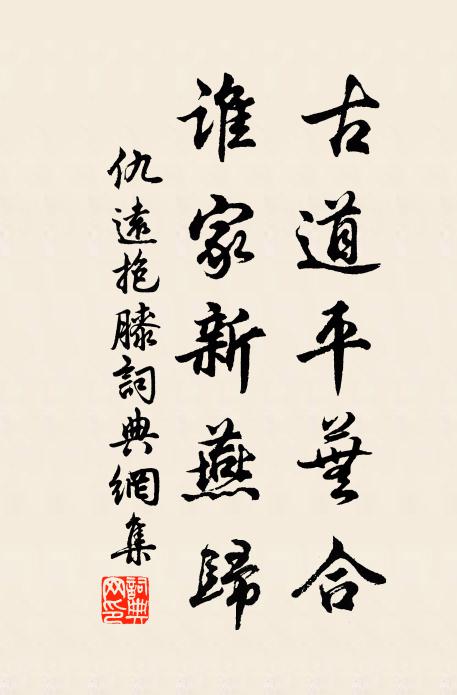 古道平蕪合
誰家新燕歸
仇遠抱膝詞典網集
詞典网印